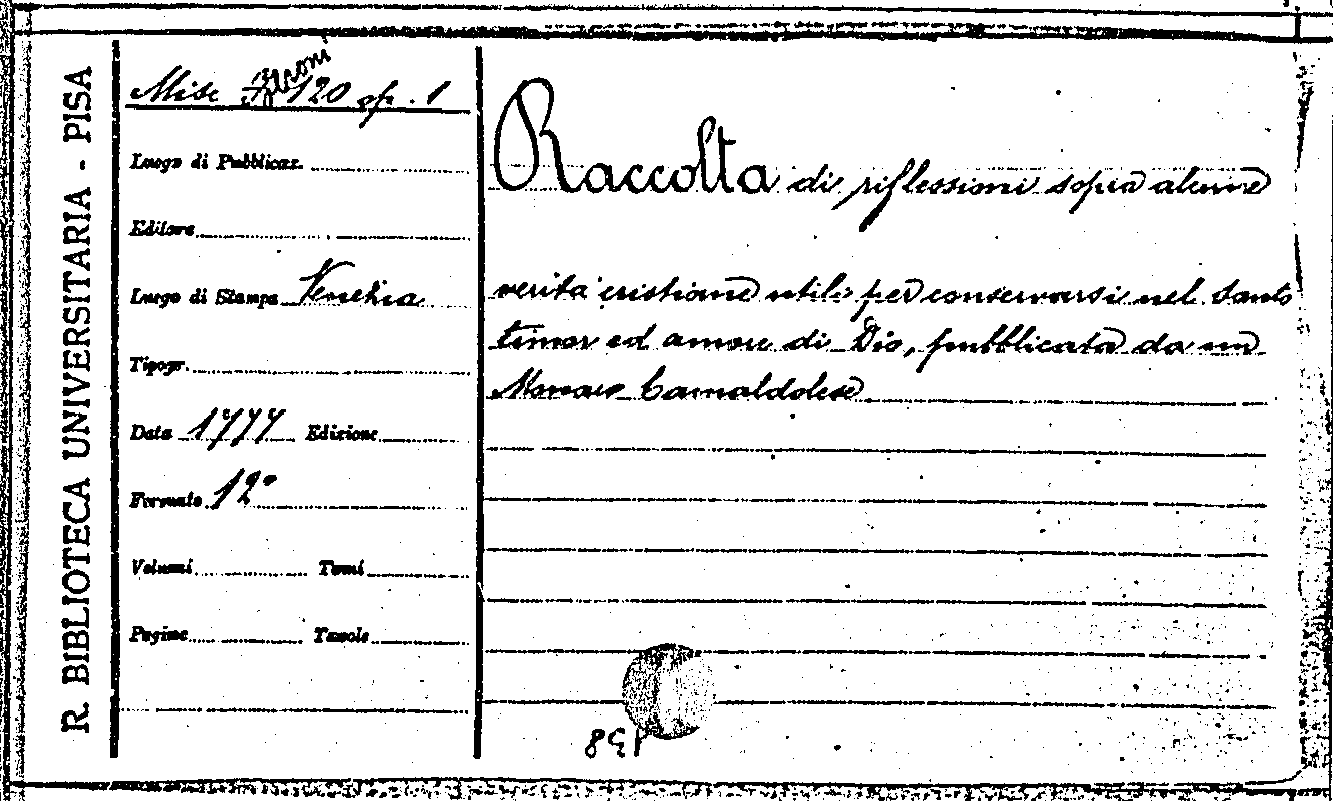 R. BIBLIOTECA UNIVERSITARIA - PISA
Misc 120 op. 1
Luogo di Pubblicaz.
Editore
Luogo di Stampa Venezia
Tipogr.
Data 1777 Edizione
Formato 12°
Volumi Tomi
Pagine Tavole
Raccolta di riflessioni sopra alcune
verità cristiane utili per conservarsi nel santo
timor ed amore di Dio, pubblicata da un
Monaco Camaldolese